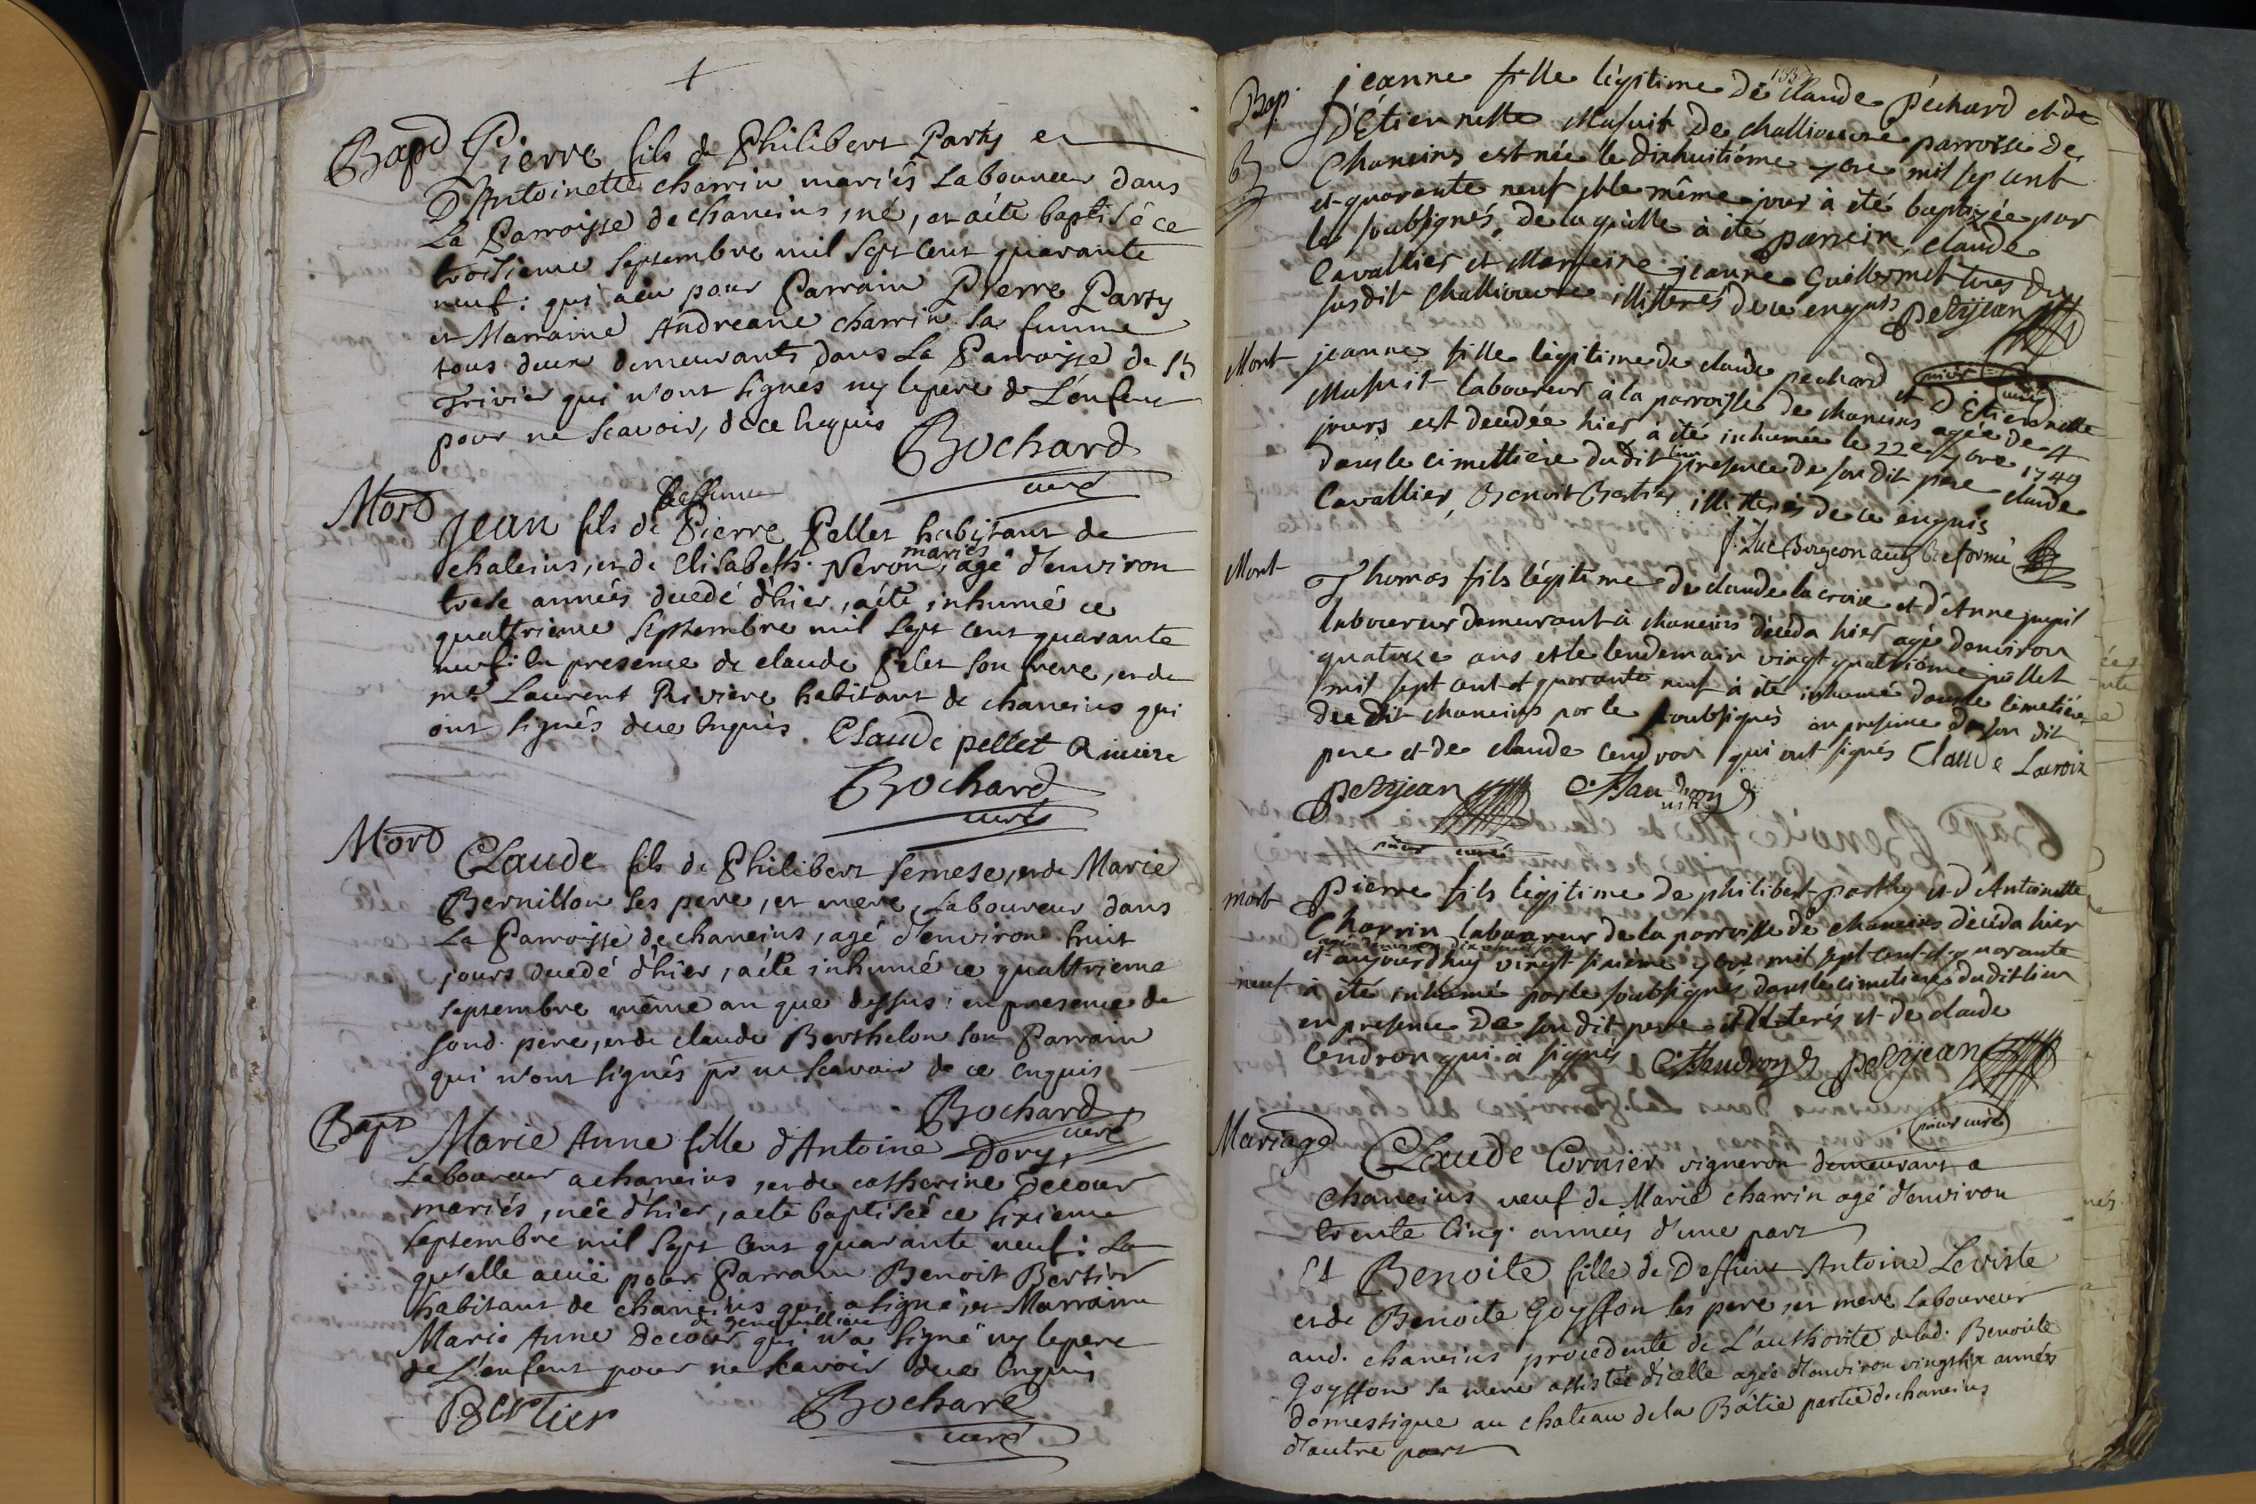 Bapt Pierre fils de Philibert Party et
D'Antoinette charrin mariés Laboureur dans
La Parroisse de chaneins, né, et a été baptisé ce
troisieme septembre mil sept cent quarante
neuf: qui a eu pour Parrain Pierre Party
et Marraine Andreane charrin sa femme
tous deux demeurants dans La Parroisse de St
Trivier qui n'ont signés ny le pere de L'enfant
pour ne scavoir, de ce Enquis
Bochard
curé
Mort
deffunt
Jean fils de Pierre Pellet habitant de
chaleins, et de Elisabeth Neron, agé d'environ
mariés
trese années decedé d'hier, a été inhumé ce
quattrieme septembre mil sept cent quarante
neuf: En presence de claude Pelet son frere, et de
mre Laurent Riviere habitant de chaneins qui
ont signés de ce Enquis. Claude pellet Riviere
Bochard
curé
Mort
Claude fils de Philibert semese, et de Marie
Bernillon ses pere, et mere, Laboureur dans
La Parroisse de chaneins, agé d'environ huit
jours decedé d'hier, a été inhumé ce quattrieme
septembre même an que dessus: en presence de
sond. pere, et de claude Berthelon son Parrain
qui n'ont signés pr ne scavoir de ce Enquis
Bochard
curé
Bapt Marie Anne fille d'Antoine Dory,
Laboureur a chaneins, et de catherine Decour
mariés, née d'hier, a été baptisée ce sixieme
septembre mil sept cent quarante neuf: La
qu'elle a eüe pour Parrain Benoit Bertier
habitant de chaneins qui a signé, et Marraine
Marie Anne Decour qui n'a signé ny le pere
de L'enfant pour ne scavoir de ce Enquis
Bertier Bochard
curé
Bap. jeanne fille légitime de claude Péchard et de
D'Étiennette Masuit de challiouvre parroisse de
Chaneins est née le dixhuitiéme 7bre mil sept cent
et quarante neuf et le même jour à été baptizée par
le soubsignés, de laquelle à été parrein claude
Cavallier et Marreine jeanne Guillermet tous du
susdit challiouvre illitterés de ce enquis petitjean
Mort jeanne fille légitime de claude pechard et d'Étiennette
Masuit laboureur à la parroisse de chaneins agée de 4
jours est decedée hier à été inhumée le 22e 7bre 1749
dans le cimettiére dudit lieu presence de son dit pere claude
Cavallier, Benoit Bertier illitterés de ce enquis
f. Luc Borgeon aug. Reformé
Mort Thomas fils légitime de claude lacroix et d'Anne pupil
laboureur demeurant à chaneins décéda hier agé denviron
quatorze ans et le lendemain vingt quatriéme juillet
mil sept cent et quarante neuf à été inhumé dans le cimetiére
du dit chaneins par le soubsignés en presence de son dit
pere et de claude Cendron qui ont signés Claude Lacroix
petitjean
prieur curé
mort pierre fils légitime de philibert parthy et d'Antoinette
Charrin laboureur de la parroisse de chaneins décéda hier
et aujourdhuy vingt sixieme 7bre mil sept cent et quarante
neuf à été inhumé par le soubsignés dans le cimetiere dudit lieu
en presence de son dit pere illiterés et de claude
Cendron qui à signés petitjean
prieur curé
Mariage Claude Cornier vigneron demeurant a
Chaneins veuf de Marie charrin agé d'environ
trente Cinq années d'une part
Et Benoite fille de Deffunt Antoine Leviste
et de Benoite Goyffon ses pere, et mere Laboureur
aud. chaneins procedente de L'authorité de lad. Benoite
Goyffon sa mere assistée d'icelle agée d'environ vingtsix années
domestique au chateau de la Bâtie partie de chaneins
d'autre part